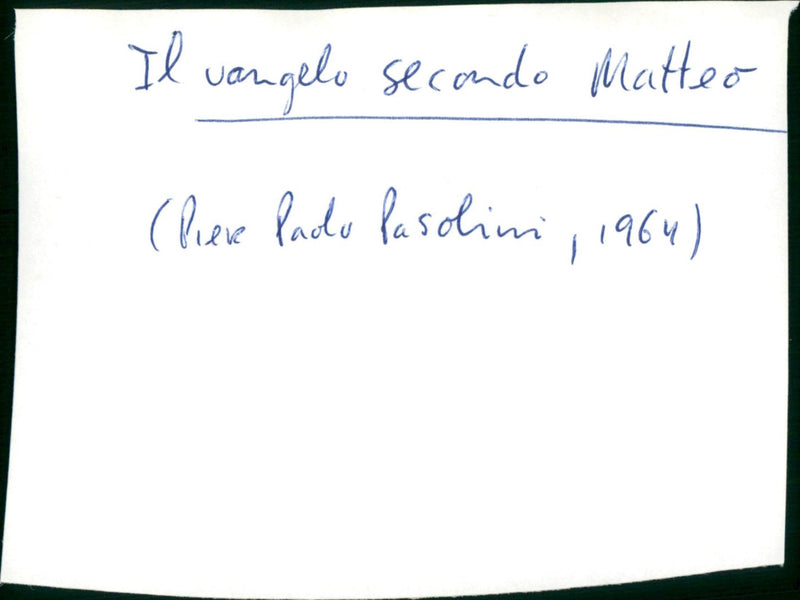 Il vangelo secondo Matteo
(Piere Paolo Pasolini, 1964)